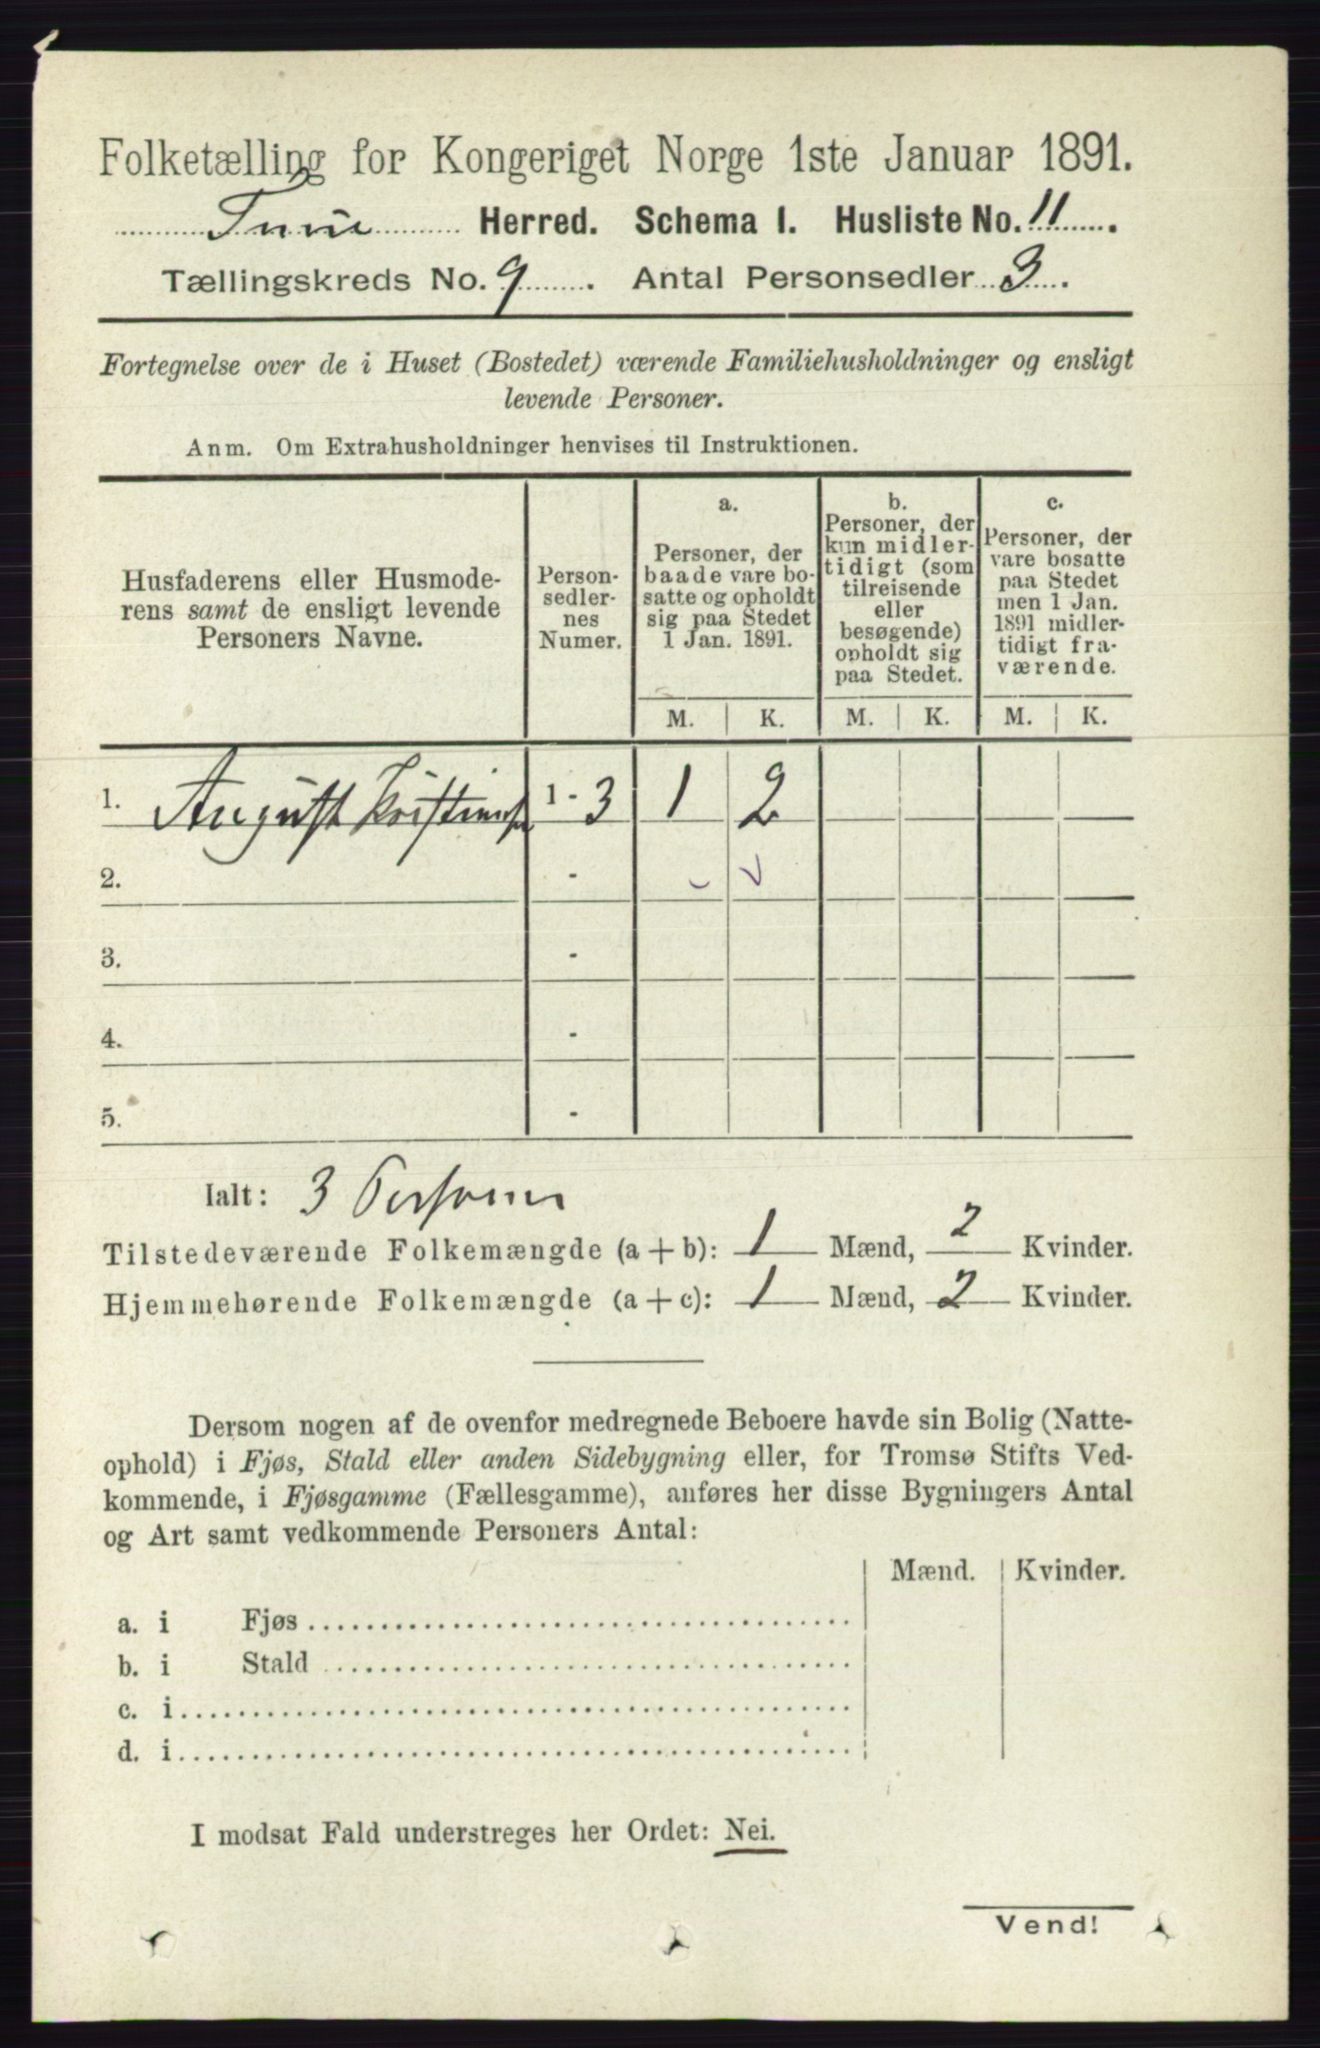 Folketælling for Kongeriget Norge 1ste Januar 1891.
Tune Herred. Schema I. Husliste No. 11.
Tællingskreds No. 9. Antal Personsedler 3.
Fortegnelse over de i Huset (Bostedet) værende Familiehusholdninger og ensligt
levende Personer.
Anm. Om Extrahusholdninger henvises til Instruktionen.
Husfaderens eller Husmode-
rens samt de ensligt levende
Personers Navne.
Person-
sedler-
nes
Numer.
a.
Personer, der
baade vare bo-
satte og opholdt
sig paa Stedet
1 Jan. 1891.
b.
Personer, der
kun midler-
tidigt (som
tilreisende
eller
besøgende)
opholdt sig
paa Stedet.
c.
Personer, der
vare bosatte
paa Stedet
men 1 Jan.
1891 midler-
tidigt fra-
værende.
M. K. M. K. M. K.
1. August Kristiansen 1 - 3 1 2
2. -
3. -
4. -
5. -
Ialt: 3 Personer
Tilstedeværende Folkemængde (a + b): 1 Mænd, 2 Kvinder.
Hjemmehørende Folkemængde (a + c): 1 Mænd, 2 Kvinder.
Dersom nogen af de ovenfor medregnede Beboere havde sin Bolig (Natte-
ophold) i Fjøs, Stald eller anden Sidebygning eller, for Tromsø Stifts Ved-
kommende, i Fjøsgamme (Fællesgamme), anføres her disse Bygningers Antal
og Art samt vedkommende Personers Antal:
Mænd. Kvinder.
a. i Fjøs
b. i Stald
c. i
d. i
I modsat Fald understreges her Ordet: Nei.
Vend!